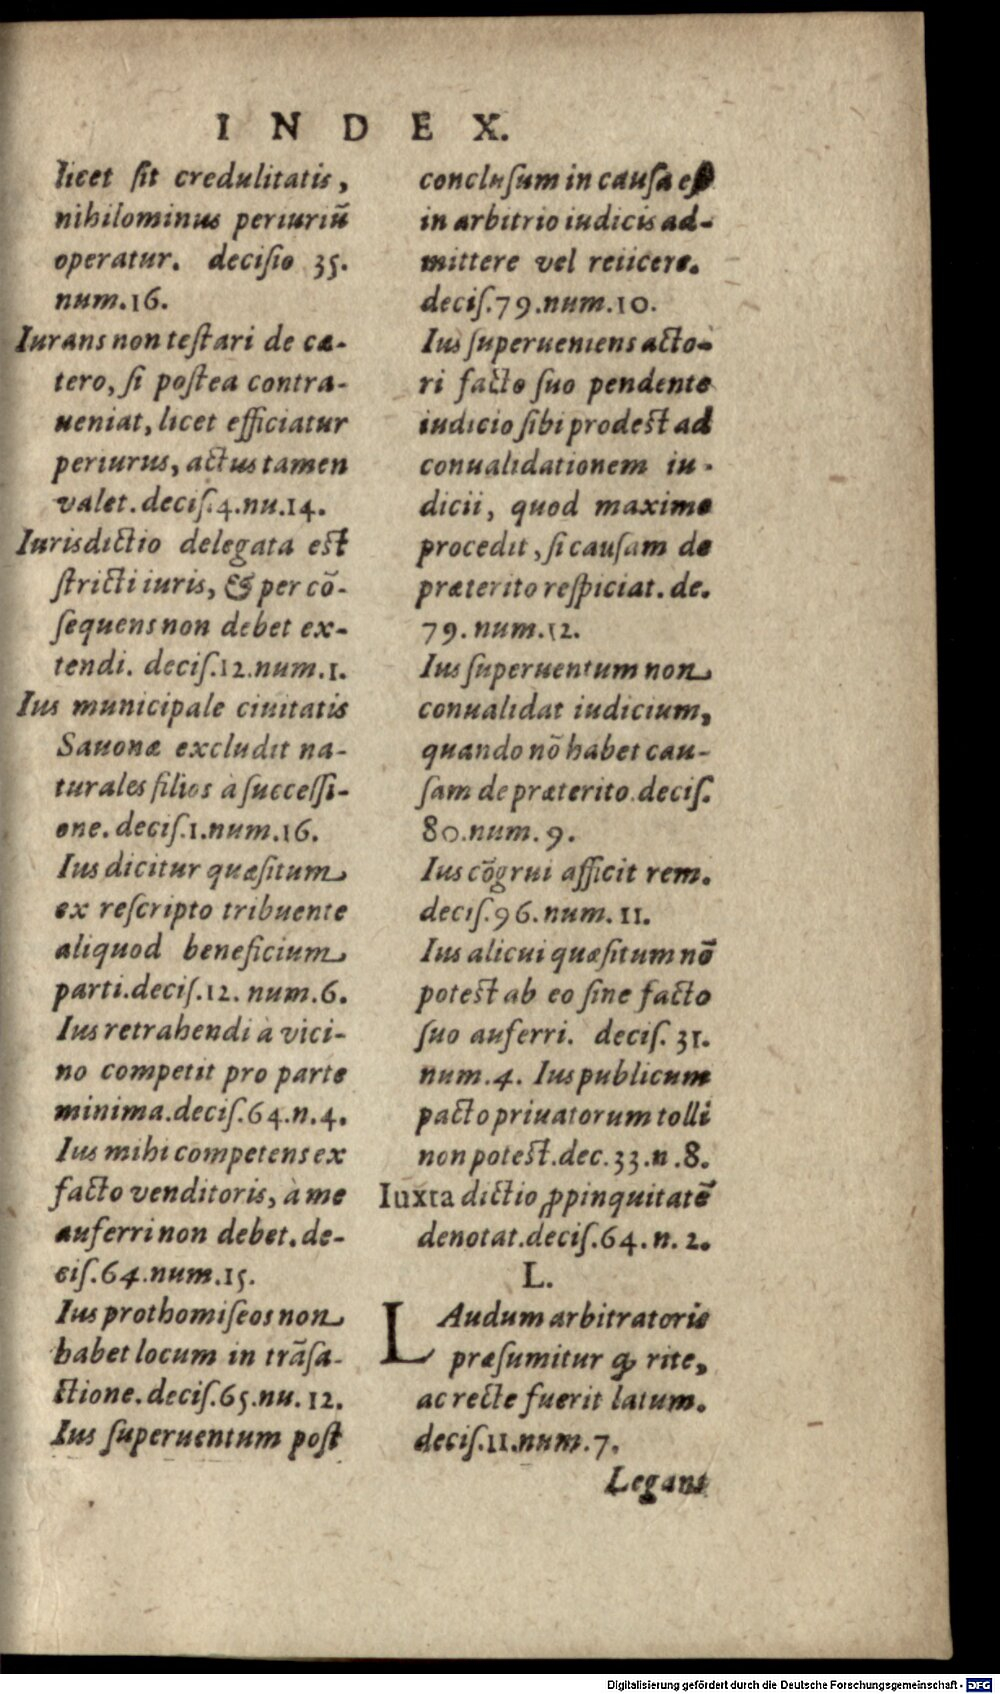 INDEX.
licet ſit credulitatis,
nihilominus periuriũ
operatur. deciſio 35.
num.16.
Iurans non teſtari de cæ-
tero, ſi poſtea contra-
ueniat, licet efficiatur
periurus, actus tamen
valet. deciſ.4.nu.14.
Iurisdictio delegata eſt
ſtricti iuris, & per cõ-
ſequens non debet ex-
tendi. deciſ.12.num.1.
Ius municipale ciuitatis
Sauonæ excludit na-
turales filios à ſucceſſi-
one. deciſ.1.num.16.
Ius dicitur quæſitum
ex reſcripto tribuente
aliquod beneficium
parti.deciſ.12. num.6.
Ius retrahendi à vici-
no competit pro parte
minima.deciſ.64.n.4.
Ius mihi competens ex
facto venditoris, à me
auferri non debet. de-
ciſ.64.num.15.
Ius prothomiſeos non
habet locum in trãſa-
ctione. deciſ.65.nu.12.
Ius ſuperuentum poſt
concluſum in cauſa eſt
in arbitrio iudicis ad-
mittere vel reiicere.
deciſ.79.num.10.
Ius ſuperueniens acto-
ri facto ſuo pendente
iudicio ſibi prodeſt ad
conualidationem iu-
dicii, quod maxime
procedit, ſi cauſam de
præterito reſpiciat. de.
79. num.12.
Ius ſuperuentum non
conualidat iudicium,
quando nõ habet cau-
ſam de præterito.deciſ.
80.num. 9.
Ius cõgrui afficit rem.
deciſ.96.num. 11.
Ius alicui quæſitum nõ
poteſt ab eo ſine facto
ſuo auferri. deciſ. 31.
num.4. Ius publicum
pacto priuatorum tolli
non poteſt.dec.33.n.8.
Iuxta dictio ꝓpinquitatẽ
denotat.deciſ.64. n. 2.
L.
LAudum arbitratoris
præſumitur ꝙ rite,
ac recte fuerit latum.
deciſ.11.num.7.
Legans
Digitalisierung gefördert durch die Deutsche Forschungsgemeinschaft - DFG